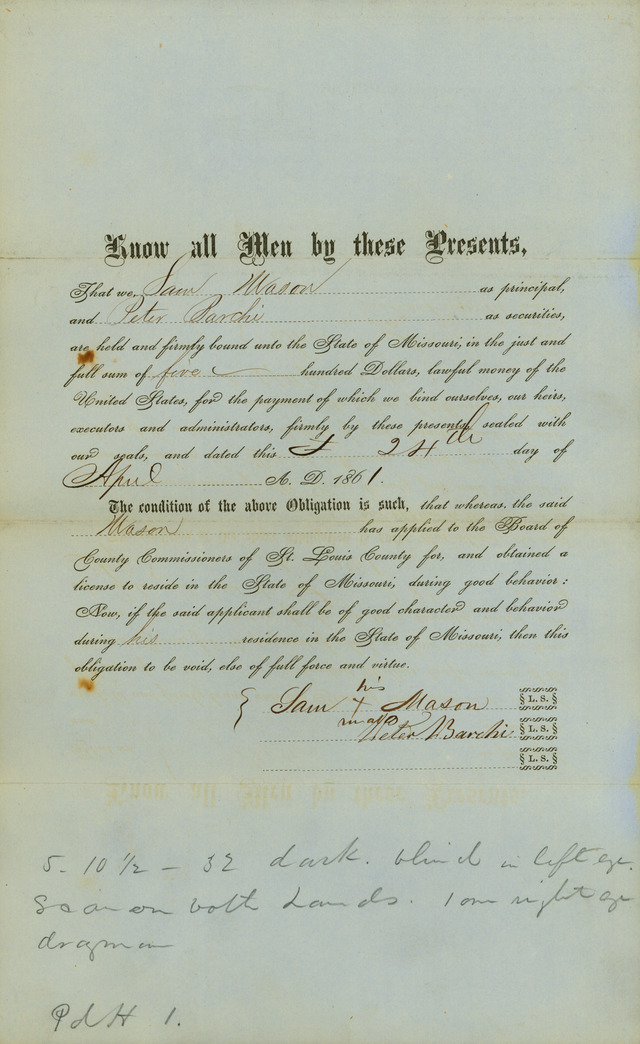 Know all Men by these Presents,
That we, Sam Mason as principal,
and Peter Barchi as securities,
are held and firmly bound unto the State of Missouri, in the just and
full sum of five hundred Dollars, lawful money of the
United States, for the payment of which we bind ourselves, our heirs,
executors and administrators, firmly by these presents, sealed with
our seals, and dated this 24th day of
April A. D. 1861.
The condition of the above Obligation is such, that whereas the said
Mason has applied to the Board of
County Commissioners of St. Louis County for, and obtained a
license to reside in the State of Missouri, during good behavior:
Now, if the said applicant shall be of good character and behavior
during his residence in the State of Missouri, then this
obligation to be void, else of full force and virtue.
his
Sam + Mason § L. S. §
mark
Peter Barchi § L. S. §
§ L. S. §
5-10 1/2 - 32 dark. blind in left eye.
Scar on both hands. 1 over right eye
drayman
Pd H 1.